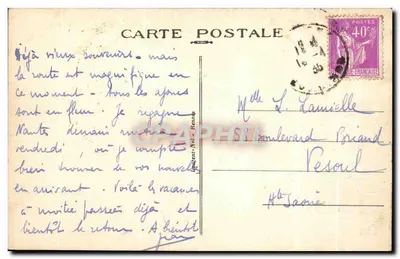 CARTE POSTALE
POSTES
40c
Déjà vieux souvenirs - mais
la route est magnifique en
ce moment - tous les ajoncs
sont en fleur. Je regagne
Nantes demain
vendredi, où je compte
bien trouver de vos nouvelles
en arrivant. Voilà les vacances
à moitié passées déjà et
bientôt le retour. A bientôt
Melle L. Lamielle
boulevard Briand
Vesoul
Hte Saône